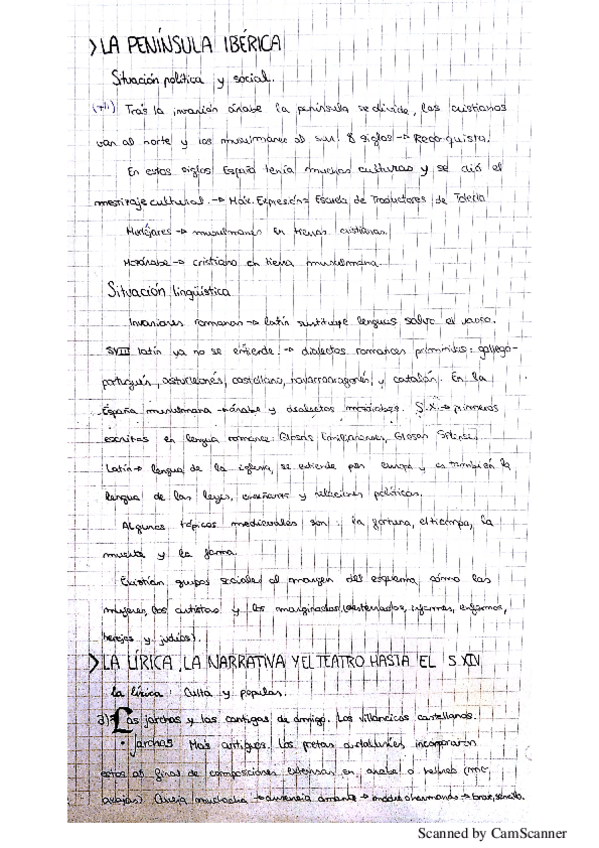 > LA PENÍNSULA IBÉRICA
Situación política y social.
(711) Tras la invasión árabe la península se divide, los cristianos
van al norte y los musulmanes al sur. 8 siglos → Reconquista.
En estos siglos España tenía muchas culturas y se dió el
mestizaje cultural. → Máx. Expresión: Escuela de Traductores de Toledo
Mudéjares → musulmanes en tierras cristianas
Mozárabe → cristiano en tierra musulmana.
Situación lingüística
Invasiones romanas → latín sustituye lenguas salvo el vasco.
SVIII latín ya no se entiende. → dialectos romances primitivos: gallego-
portugués, astur leonés, castellano, navarroaragonés, y catalán. En la
España musulmana → árabe y dialectos mozárabes. S.X. → primeros
escritos en lengua romance: Glosas Emilianenses, Glosas Silenses.
Latín → lengua de la iglesia, se extiende por europa y es también la
lengua de las leyes, enseñanza y relaciones políticas.
Algunos tópicos medievales son: la fortuna, el tiempo, la
muerte y la fama.
Existían grupos sociales al margen del esquema, cómo las
mujeres, los artistas y los marginados (desterrados, enfermos,
herejes y judíos).
> LA LÍRICA, LA NARRATIVA Y EL TEATRO HASTA EL S XIV
la lírica: Culta y popular.
a) Las jarchas y las cantigas de amigo. Los villancicos castellanos.
• Jarchas Mas antiguas. Los poetas andalusíes incorporaron
estas al final de composiciones extensas en árabe o hebreo (moaxajas)
muchacha → ausencia amante → madre o hermanas → breve, sencilla.
Scanned by CamScanner